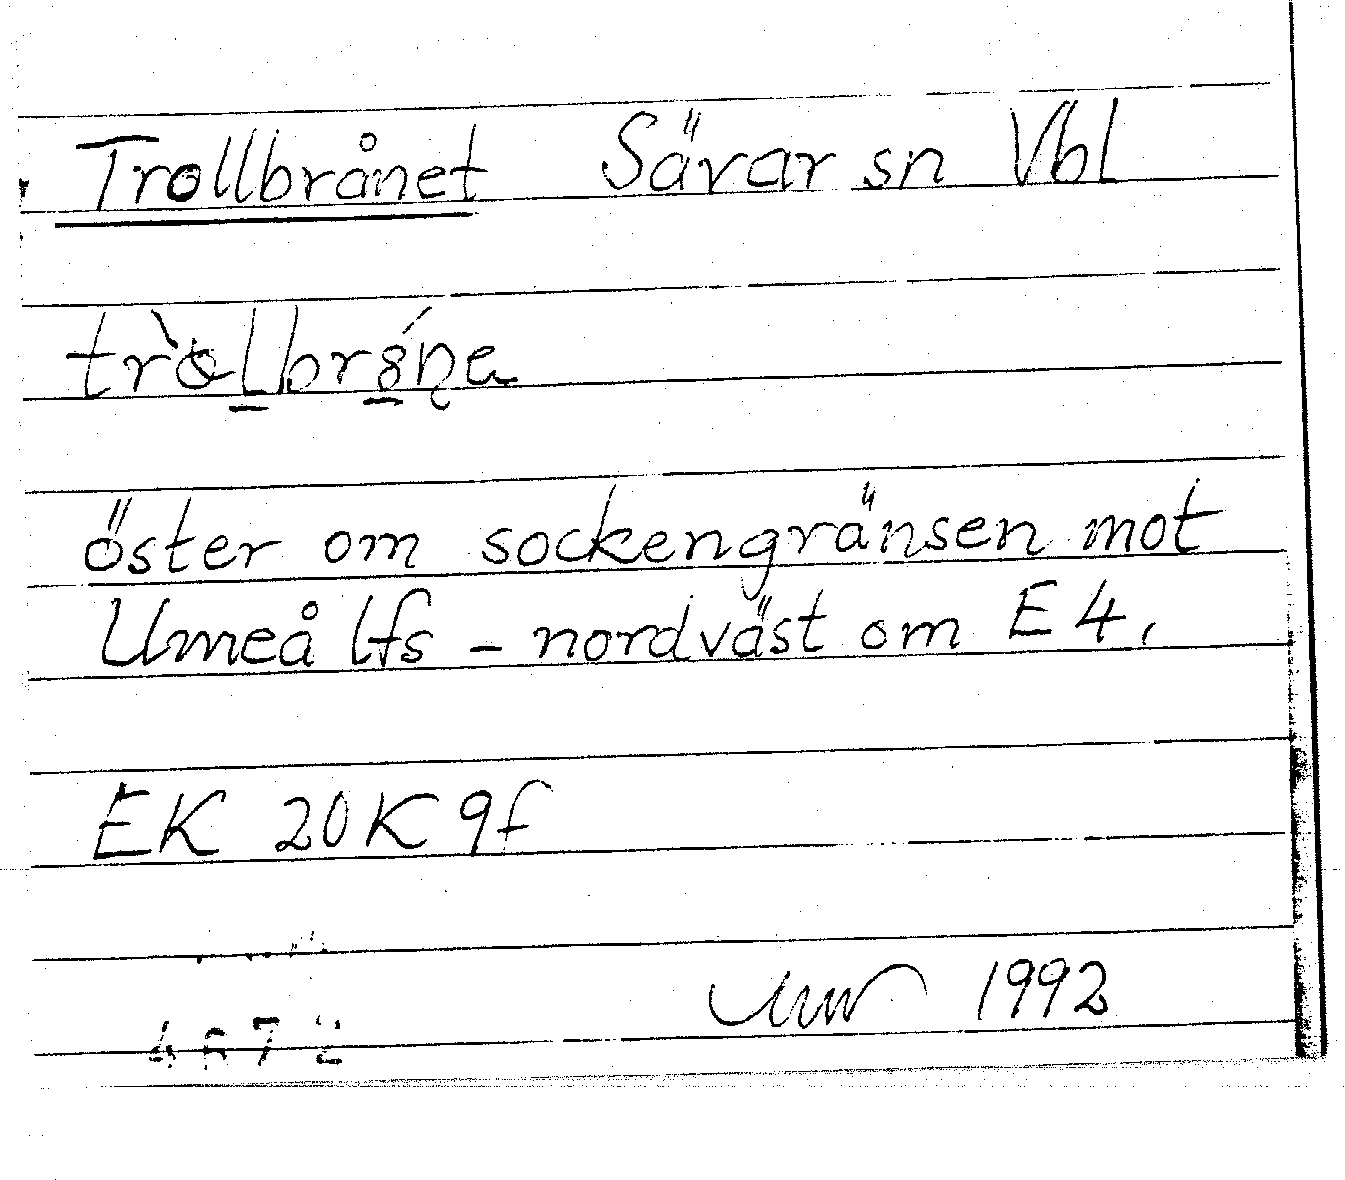 Trollbrånet Sävar sn Vbl
öster om sockengränsen mot
Umeå lfs - nordväst om E4,
EK 20K 9f
1992